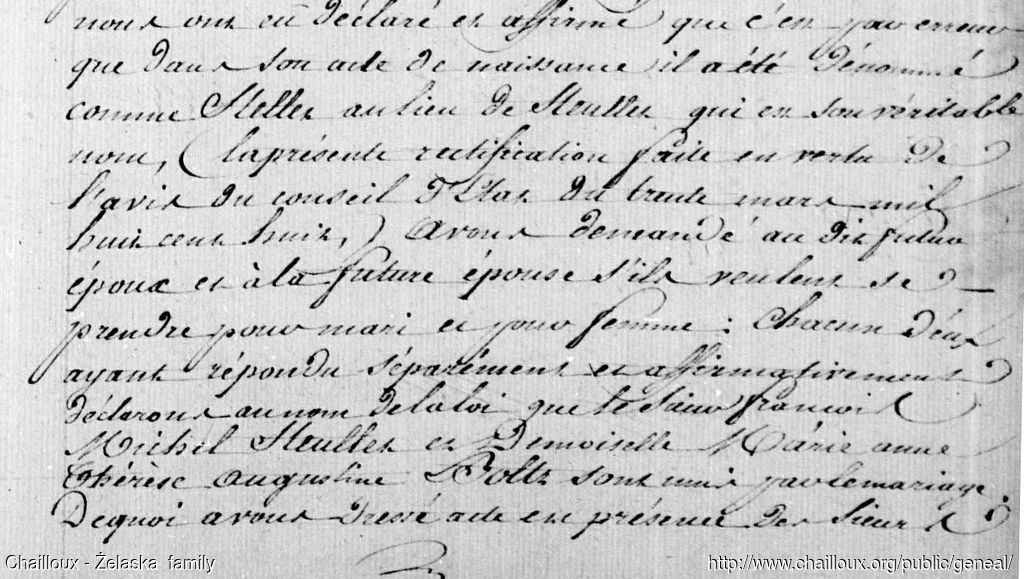 nous ont eû déclaré et affirmé que c'est par erreur
que dans son acte de naissance il a été dénommé
comme Steller au lieu de Steuller qui est son véritable
nom, (la présente rectification faite en vertu de
l'avis du conseil d'Etat du trente mars mil
huit cent huit,) avons demandé au dit futur
époux et à la future épouse s'ils veulent se
prendre pour mari et pour femme : chacun d'eux
ayant répondu séparément et affirmativement
déclarons au nom de la loi que le Sieur francois
Michel Steuller et Demoiselle Marie anne
thérèse augustine Boltz sont unis par le mariage.
De quoi avons dressé acte en présence des Sieurs
Chailloux - Żelaska family
http://www.chailloux.org/public/geneal/